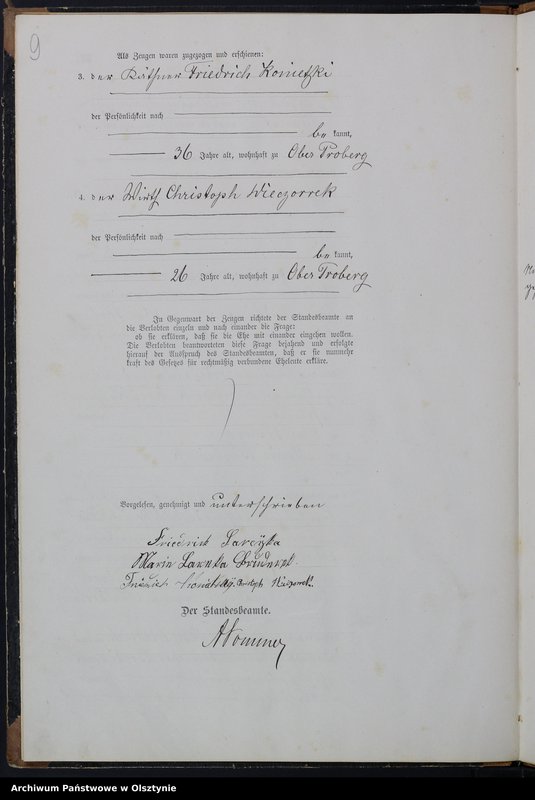 9
Als Zeugen waren zugezogen und erschienen:
3. der Käthner Friedrich Konietzki
der Persönlichkeit nach
be kannt,
36 Jahre alt, wohnhaft zu Ober Proberg
4. der Wirth Christoph Wieczorrek
der Persönlichkeit nach
be kannt,
26 Jahre alt, wohnhaft zu Ober Proberg
In Gegenwart der Zeugen richtete der Standesbeamte an
die Verlobten einzeln und nach einander die Frage:
ob sie erklären, daß sie die Ehe mit einander eingehen wollen.
Die Verlobten beantworteten diese Frage bejahend und erfolgte
hierauf der Ausspruch des Standesbeamten, daß er sie nunmehr
kraft des Gesetzes für rechtmäßig verbundene Eheleute erkläre.
Vorgelesen, genehmigt und unterschrieben
Friedrich
Marie
Christoph Wieczorrek
Der Standesbeamte.
Archiwum Państwowe w Olsztynie